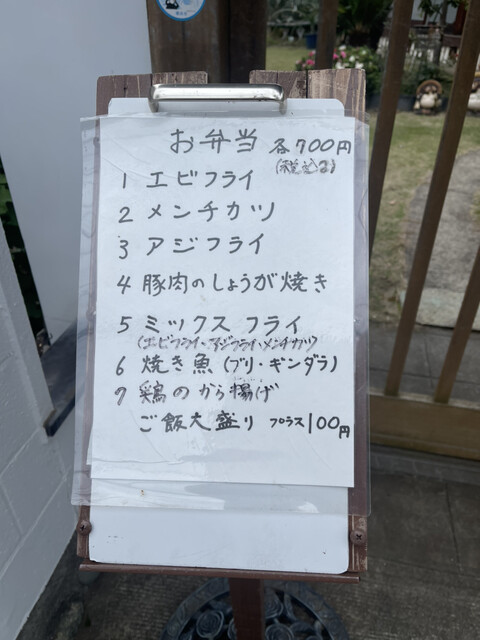 お弁当 各700円
(税込み)
1 エビフライ
2 メンチカツ
3 アジフライ
4 豚肉のしょうが焼き
5 ミックスフライ
(エビフライ・アジフライ・メンチカツ
6 焼き魚(ブリ・ギンダラ)
7 鶏のから揚げ
ご飯大盛り プラス100円